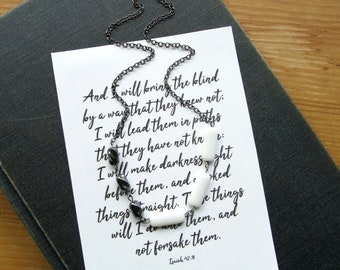 And I will bring the blind
by a way that they knew not;
I will lead them in paths
that they have not
will make darkness
before them, and
things straight. These things
will I do unto them, and
not forsake them.
Isaiah 42:16